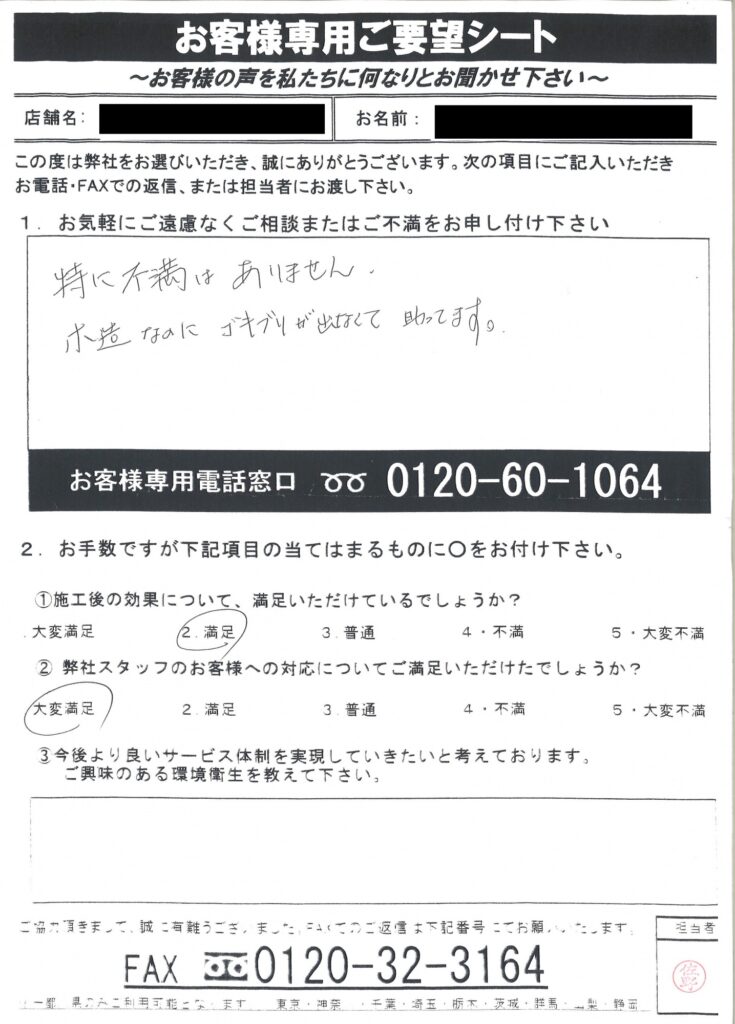 お客様専用ご要望シート
～お客様の声を私たちに何なりとお聞かせ下さい～
店舗名: お名前:
この度は弊社をお選びいただき、誠にありがとうございます。次の項目にご記入いただき
お電話・FAXでの返信、または担当者にお渡し下さい。
1. お気軽にご遠慮なくご相談またはご不満をお申し付け下さい
特に不満はありません.
木造なのにゴキブリが出なくて助ってます。
お客様専用電話窓口 0120-60-1064
2. お手数ですが下記項目の当てはまるものに〇をお付け下さい。
①施工後の効果について、満足いただけているでしょうか?
. 大変満足 2. 満足 3. 普通 4・不満 5・大変不満
② 弊社スタッフのお客様への対応についてご満足いただけたでしょうか?
大変満足 2. 満足 3. 普通 4・不満 5・大変不満
③今後より良いサービス体制を実現していきたいと考えております。
ご興味のある環境衛生を教えて下さい。
ご協力頂きまして、誠に有難うございました。FAXでのご返信は下記番号にてお願いいたします。
担当者
FAX 0120-32-3164
佐野
東京・神奈・千葉・埼玉・栃木・茨城・群馬・山梨・静岡